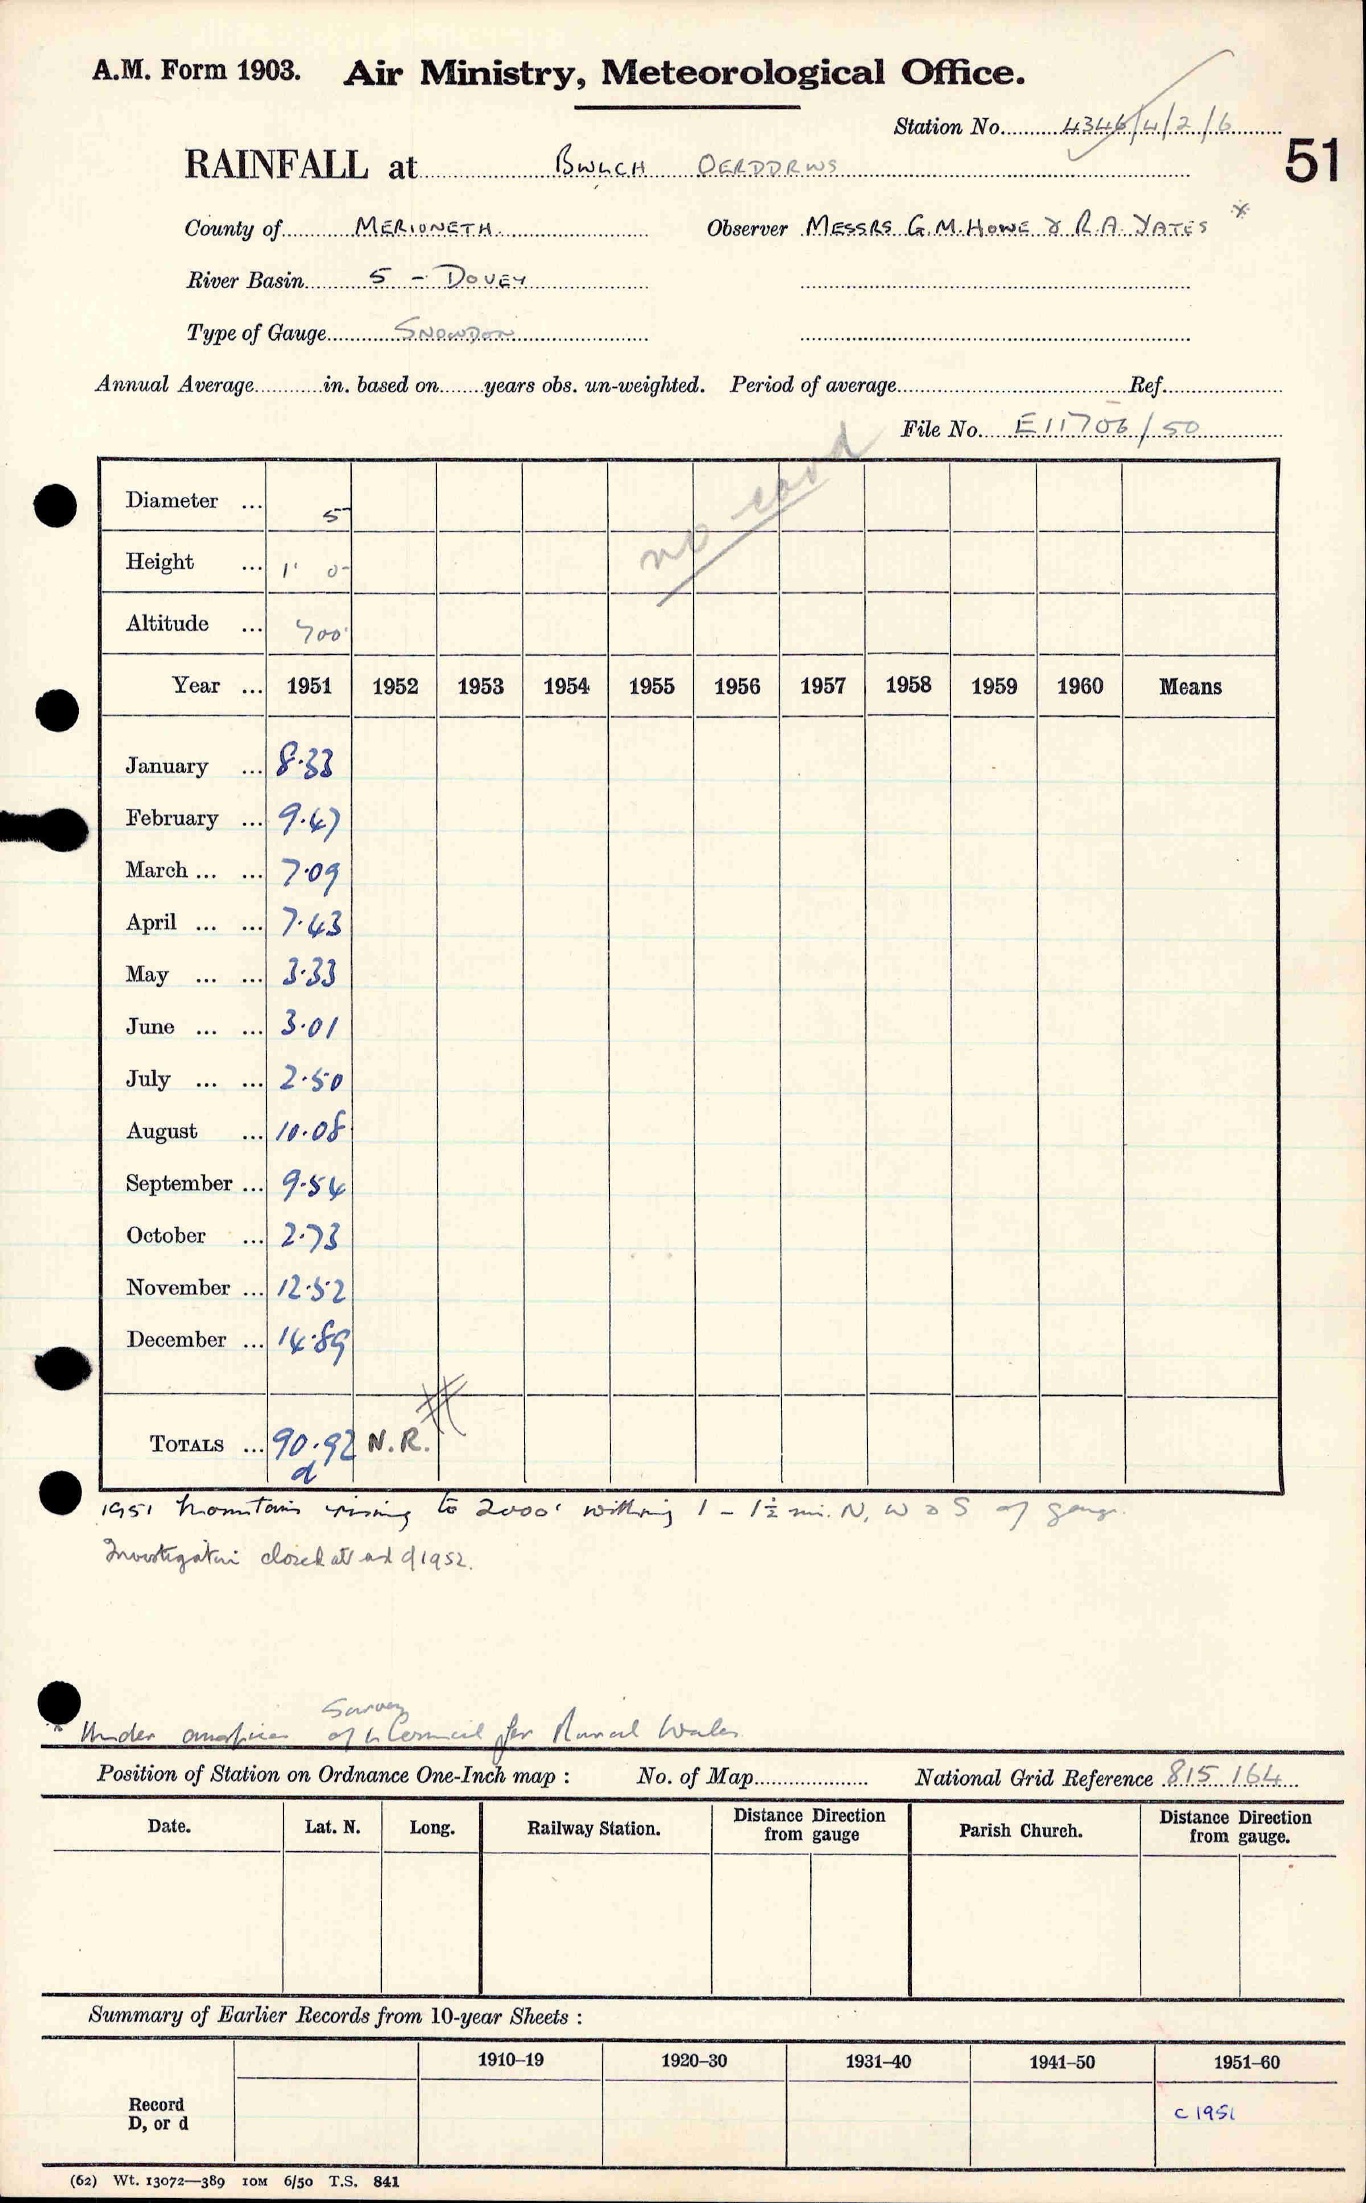 A.M. Form 1903. Air Ministry, Meteorological Office.
Station No. 4346/4/2/6
51
RAINFALL at BWLCH OERDDRWS
County of MERIONETH. Observer MESSRS G.M. HOWE & R.A. YATES *
River Basin 5 - DOVEY
Type of Gauge SNOWDON
Annual Average in. based on years obs. un-weighted. Period of average Ref.
File No. E11706/50
no card
Diameter ... 5
Height ... 1' 0
Altitude ... 700'
Year ... 1951 1952 1953 1954 1955 1956 1957 1958 1959 1960 Means
January ... 8.33
February ... 9.47
March ... ... 7.09
April ... ... 7.43
May ... ... 3.33
June ... ... 3.01
July ... ... 2.50
August ... 10.08
September ... 9.54
October ... 2.73
November ... 12.52
December ... 14.89
TOTALS ... 90.92 N.R.
d
1951 Mountain rising to 2000' within 1 - 1½ mi. N, W & S of gauge.
Investigation closed at end of 1952.
Survey
* Under auspices of Council for Rural Wales
Position of Station on Ordnance One-Inch map : No. of Map National Grid Reference 815 164
Date. Lat. N. Long. Railway Station. Distance Direction from gauge Parish Church. Distance Direction from gauge.
Summary of Earlier Records from 10-year Sheets :
1910–19 1920–30 1931–40 1941–50 1951–60
Record
D, or d
c 1951
(62) Wt. 13072—389 10M 6/50 T.S. 841